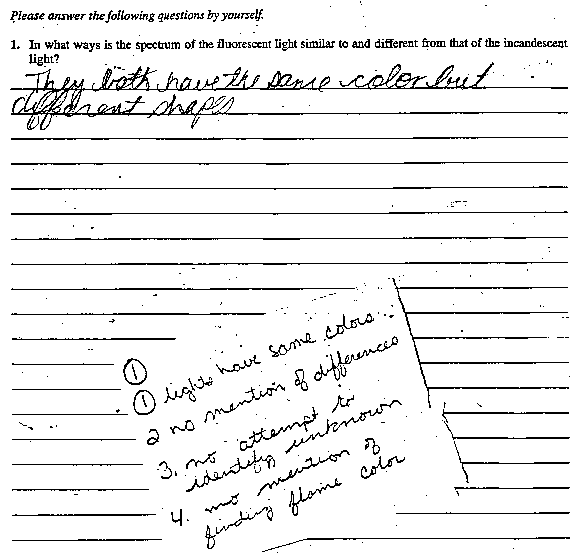 Please answer the following questions by yourself.
1. In what ways is the spectrum of the fluorescent light similar to and different from that of the incandescent
light?
They both have the same color but
different shapes
①
① lights have same colors
2 no mention of differences
3. no attempt to
identify unknown
4. no mention of
finding flame color